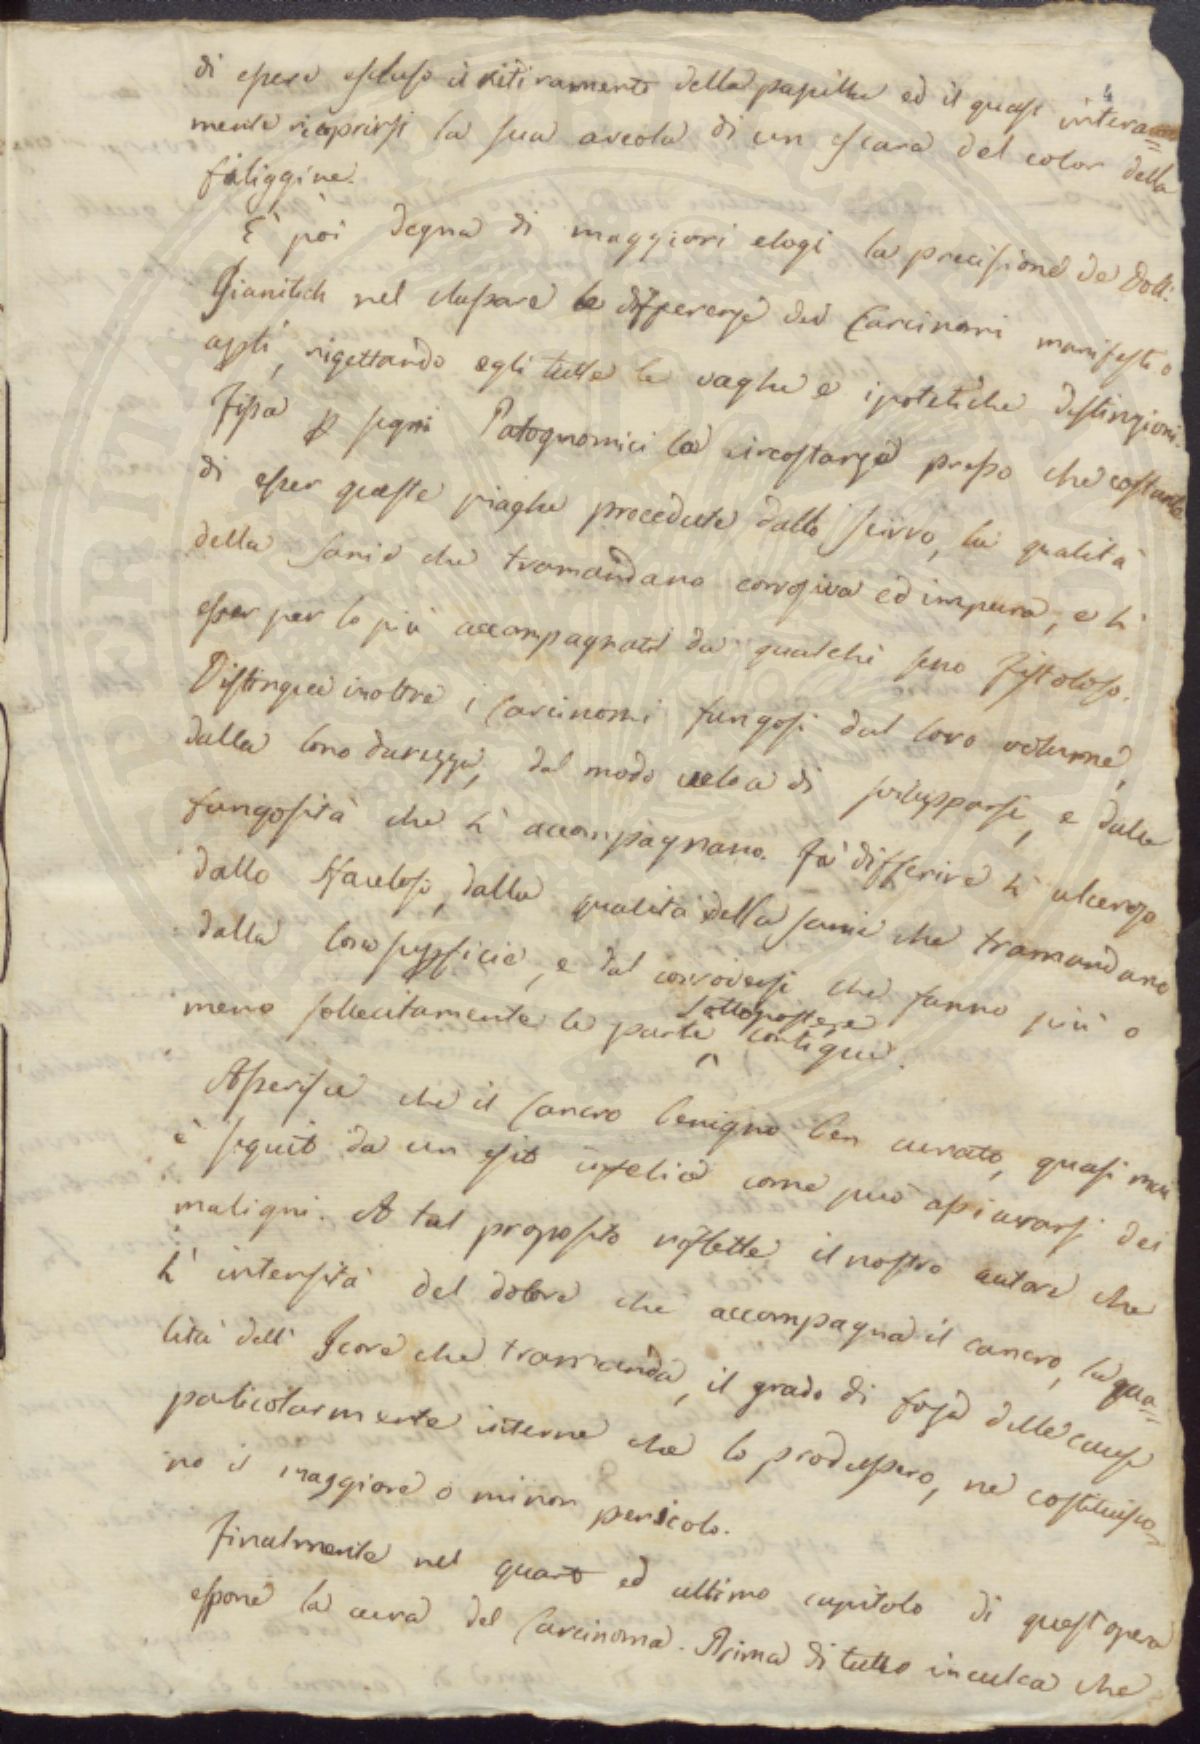 4
di esser escluso il ritiramento della papilla ed il quasi intera=
mente ricoprirsi la sua areola di un escara del color della
faliggine.
È poi degna di maggiori elogi la precisione de Dott:
Gianitich nel classare le differenze dei Carcinomi manifesti o
apti, rigettando egli tutte le vaghe e ipotetiche distinzioni.
Fissa p segni Patognomici la circostanza presso che costante
di esser queste piaghe procedute dallo scirro, la qualità
della sanie che tramandano corrosiva ed impura, e l'
esser per lo più accompagnati da qualche seno fistoloso.
Distingue inoltre i Carcinomi fungosi dal loro volume,
dalla loro durezza, dal modo veloce di svilupparsi, e dalle
fungosità che l' accompagnano. Fa differire l' ulceroso
dallo sfaceloso, dalla qualità della sanie che tramandano
dalla loro suppficie, e dal corrodersi che fanno più o
meno sollecitamente le parti contigue.
sottoposte, e
Asserisce che il Cancro benigno ben curato, quasi mai
è seguito da un esito infelice come può assicurarsi dei
maligni. A tal proposito riflette il nostro autore che
l' intensità del dolore che accompagna il cancro, la qua=
lità dell' Icore che tramanda, il grado di foza delle cause
paticolarmente interne che lo produssero, ne costituisco=
no il maggiore o minor pericolo.
Finalmente nel quarto ed ultimo capitolo di quest opera
espone la cura del Carcinoma. Prima di tutto inculca che